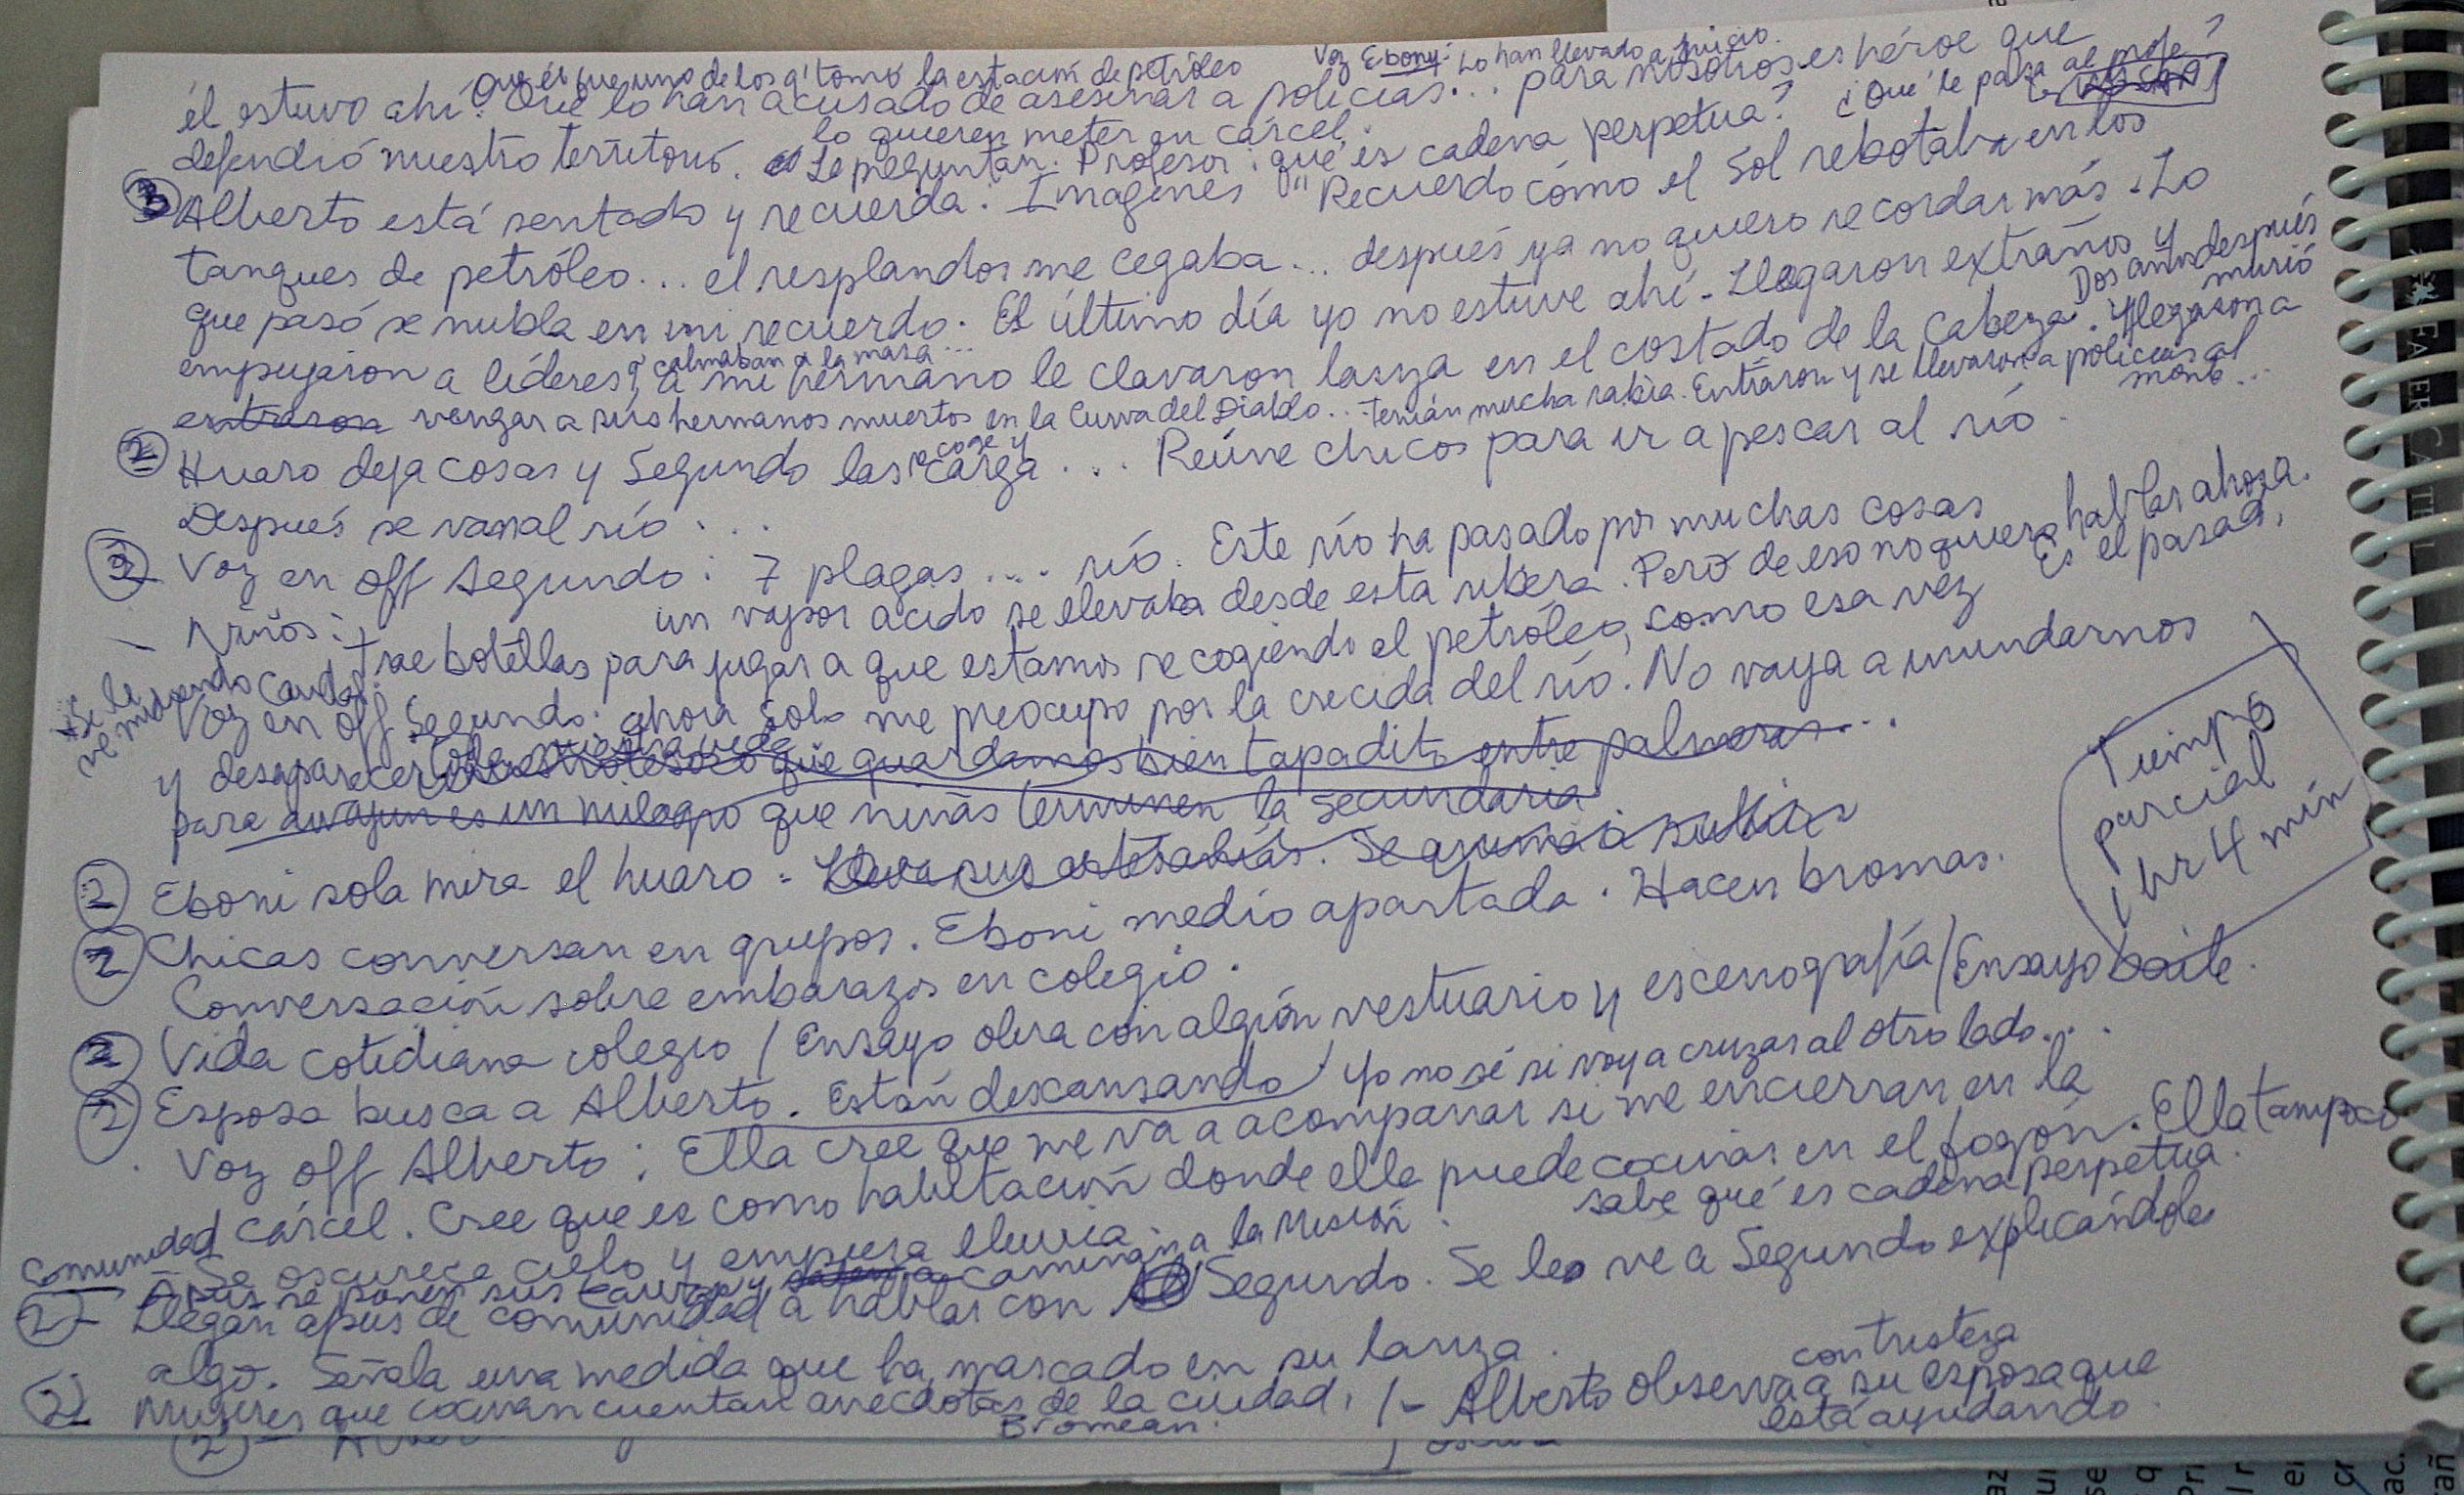 Que él fue uno de los q' tomó la estación de petróleo
Voz Ebony: Lo han llevado a juicio.
él estuvo ahí? Que lo han acusado de asesinar a policías... para nosotros es héroe que
lo quieren meter en cárcel.
¿Qué le pasa al profe?
defendió nuestro territorio. Le preguntan. Profesor: qué es cadena perpetua?
3 Alberto está sentado y recuerda. Imágenes "Recuerdo cómo el sol rebotaba en los
tanques de petróleo... el resplandor me cegaba... después ya no quiero recordar más. Lo
que pasó se nubla en mi recuerdo. El último día yo no estuve ahí. Llegaron extraños y
empujaron a líderes q' calmaban a la masa... a mi hermano le clavaron lanza en el costado de la cabeza. Dos años después murió
Y llegaron a
entraron vengar a sus hermanos muertos en la Curva del Diablo... Tenían mucha rabia. Entraron y se llevaron a policías al
monte...
2 Huaro deja cosas y Segundo las recoge y carga... Reúne chicos para ir a pescar al río.
Después se van al río...
3 Voz en off Segundo: 7 plagas.... río. Este río ha pasado por muchas cosas
un vapor ácido se elevaba desde esta ribera. Pero de eso no quiero hablar ahora.
Es el pasado.
- Niños: Trae botellas para jugar a que estamos recogiendo el petróleo, como esa vez
* Se le ve midiendo caudal
Voz en off Segundo: ahora solo me preocupo por la crecida del río. No vaya a inundarnos
y desaparecer toda nuestra vida que guardamos bien tapadito entre palmeras...
para awajun es un milagro que niñas terminen la secundaria
Tiempo
parcial
1 hr 4 min
2 Eboni sola mira el huaro. Lleva sus artesanías. Se anima a subir
2 Chicas conversan en grupos. Eboni medio apartada. Hacen bromas.
Conversación sobre embarazos en colegio.
2 Vida cotidiana colegio / Ensayo obra con algún vestuario y escenografía / Ensayo baile.
2 Esposa busca a Alberto. Están descansando
Yo no sé si voy a cruzar al otro lado...
Voz off Alberto: Ella cree que me va a acompañar si me encierran en la
cárcel. Cree que es como habitación donde ella puede cocinar en el fogón. Ella tampoco
sabe qué es cadena perpetua.
Comunidad
Se oscurece cielo y empieza lluvia
Apus se ponen sus y caminan a la Misión.
2 - Llegan apus de comunidad a hablar con Segundo. Se les ve a Segundo explicándoles
algo. Señala una medida que ha marcado en su lanza.
2 Mujeres que cocinan cuentan anécdotas de la ciudad. / - Alberto observa con tristeza a su esposa que
Bromean.
está ayudando.
2